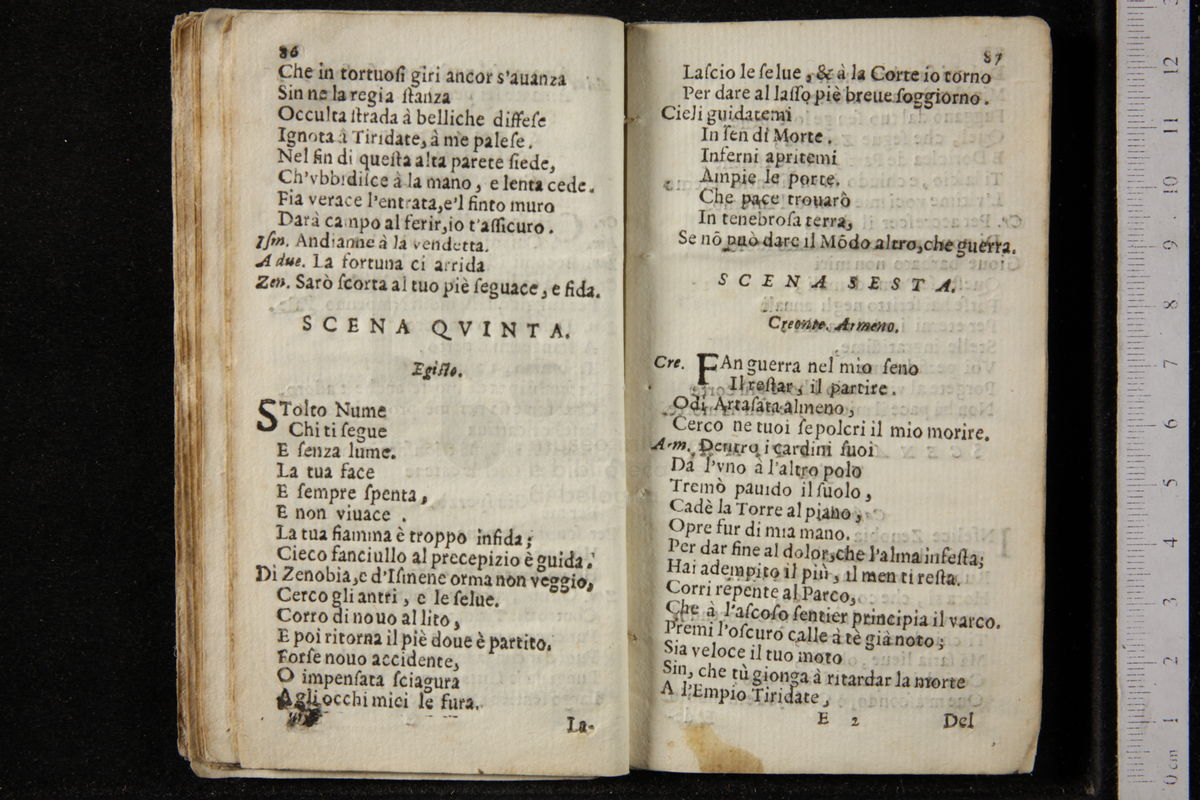 86
Che in tortuosi giri ancor s'auanza
Sin ne la regia stanza
Occulta strada à belliche diffese
Ignota à Tiridate, à me palese.
Nel fin di questa alta parete siede,
Ch'vbbidisce à la mano, e lenta cede.
Fia verace l'entrata, e'l finto muro
Darà campo al ferir, io t'assicuro.
Ism. Andianne à la vendetta.
A due. La fortuna ci arrida
Zen. Sarò scorta al tuo piè seguace, e fida.
SCENA QVINTA.
Egisto.
STolto Nume
Chi ti segue
E senza lume.
La tua face
E sempre spenta,
E non viuace.
La tua fiamma è troppo infida;
Cieco fanciullo al precepizio è guida.
Di Zenobia, e d'Ismene orma non veggio,
Cerco gli antri, e le selue.
Corro di nouo al lito,
E poi ritorna il piè doue è partito.
Forse nouo accidente,
O impensata sciagura
Agli occhi miei le fura.
La-
87
Lascio le selue, & à la Corte io torno
Per dare al lasso piè breue soggiorno.
Cieli guidatemi
In sen di Morte.
Inferni apritemi
Ampie le porte.
Che pace trouarò
In tenebrosa terra,
Se nõ può dare il Mõdo altro, che guerra.
SCENA SESTA.
Creonte. Armeno.
Cre. FAn guerra nel mio seno
Il restar, il partire.
Odi Artasata almeno,
Cerco ne tuoi sepolcri il mio morire.
Arm. Dentro i cardini suoi
Da l'vno à l'altro polo
Tremò pauido il suolo,
Cadè la Torre al piano,
Opre fur di mia mano.
Per dar fine al dolor, che l'alma infesta;
Hai adempito il più, il men ti resta.
Corri repente al Parco,
Che à l'ascoso sentier principia il varco.
Premi l'oscuro calle à tè già noto;
Sia veloce il tuo moto
Sin, che tù gionga à ritardar la morte
A l'Empio Tiridate,
E 2
Del
12
11
10
9
8
7
6
5
4
3
2
1
0 cm